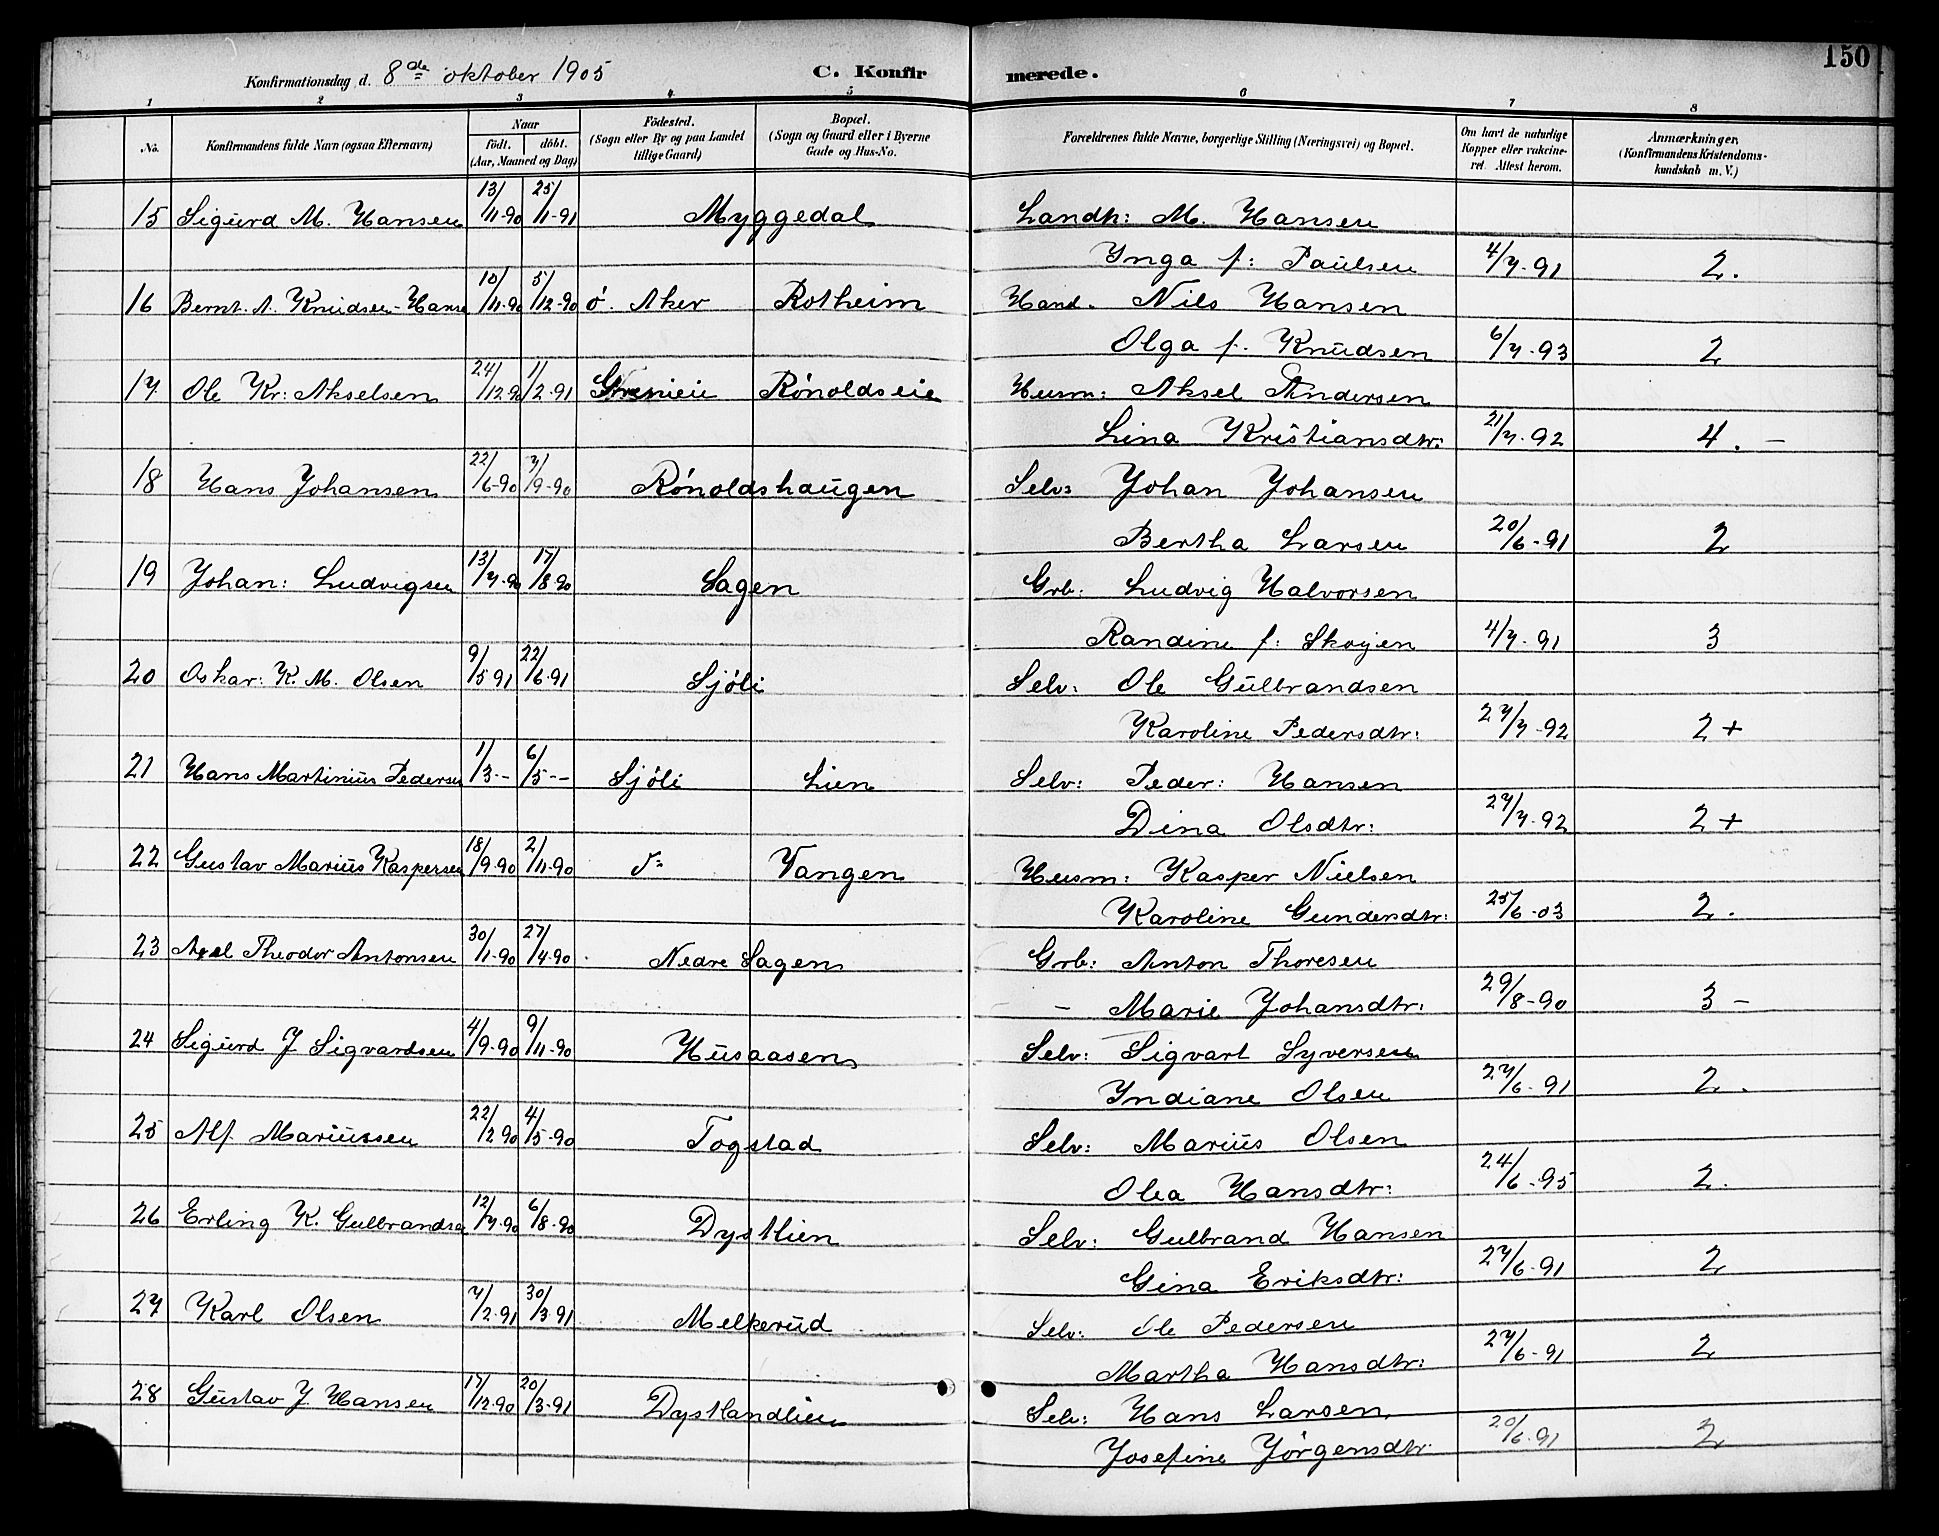 150
Konfirmationsdag d. 8de oktober 1905 C. Konfirmerede.
1 2 3 4 5 6 7 8
No. Konfirmandens fulde Navn (ogsaa Efternavn) Naar födt. döbt. (Aar, Maaned og Dag) Födested. (Sogn eller By og paa Landet tillige Gaard) Bopæl. (Sogn og Gaard eller i Byerne Gade og Hus-No. Forældrenes fulde Navne, borgerlige Stilling (Næringsvei) og Bopæl. Om havt de naturlige Kopper eller vakcineret. Attest herom. Anmærkninger. (Konfirmandens Kristendomskundskab m. V.)
15 Sigurd M. Hansen 13/11-90 25/1-91 Myggedal Landh: M. Hansen
Inga f: Paulsen 4/7-91 2.
16 Bernt. A. Knudsen-Hanse 10/11-90 5/12-90 ö. Aker Rotheim Hand. Nils Hansen
Olga f. Knudsen 6/7-93 2
17 Ole Kr: Akselsen 24/12-90 1/2-91 Rönoldseie Husm: Aksel Andersen
Lina Kristiansdtr: 21/7-92 4. -
18 Hans Johansen 22/6-90 7/9-90 Rönoldshaugen Selv: Johan Johansen
Bertha Larsen 20/6-91 2
19 Johan: Ludvigsen 13/7-90 17/8-90 Sagen Grb: Ludvig Halvorsen
Randine f: Skoyen 4/7-91 3
20 Oskar: K. M. Olsen 9/5 91 22/6-91 Sjöli Selv: Ole Gulbrandsen
Karoline Pedersdtr: 27/7-92 2 +
21 Hans Martinius Pedersen 1/3-- 6/5-- Sjöli Lien Selv: Peder: Hansen
Dina Olsdtr: 27/7-92 2 +
22 Gustav Marius Kaspersen 18/9-90 2/11-90 Vangen Husm: Kasper Nielsen
Karoline Gundersdtr: 25/6-03 2.
23 Axel Theodor Antonsen 30/1-90 27/4-90 Nedre Sagen Grb: Anton Thoresen
- Marie Johansdtr: 29/8-90 3 -
24 Sigurd J Sigvardsen 4/9-90 9/11-90 Husaasen Selv: Sigvart Syversen
Indiane Olsen 27/6-91 2.
25 Alf Mariussen 22/2 90 4/5-90 Togstad Selv: Marius Olsen
Olea Hansdtr: 24/6-95 2.
26 Erling K. Gulbrandsen 12/7-90 6/8-90 Dystlien Selv: Gulbrand Hansen
Gina Eriksdtr: 27/6-91 2
27 Karl Olsen 7/2-91 30/3-91 Melkerud Selv: Ole Pedersen
Martha Hansdtr: 27/6-91 2
28 Gustav J. Hansen 17/12-90 20/3-91 Dystlandlien Selv: Hans Larsen
Josefine Jörgensdtr 20/6-91 2